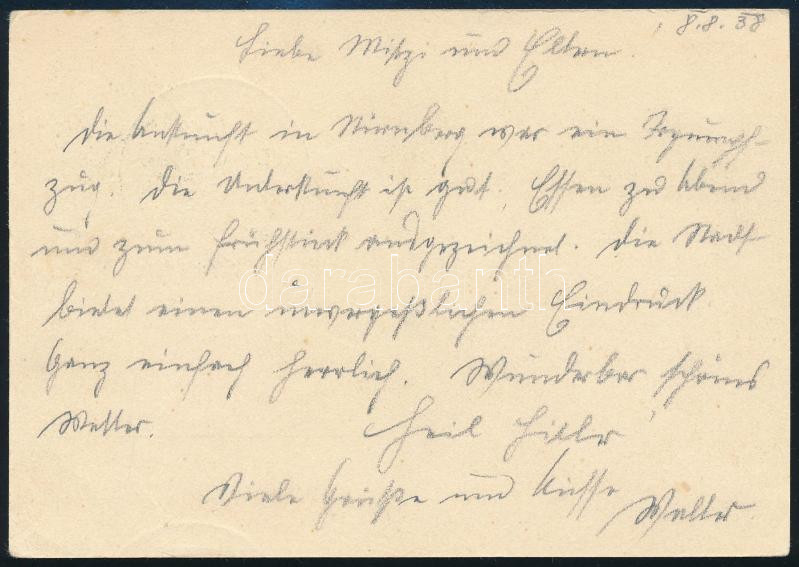 8.8.38
Liebe Mitzi und Eltern!
Die Ankunft in Nürnberg war ein Trzumph-
zug. Die Unterkunft ist gut. Essen zu Abend
und zum Frühstück ausgezeichnet. Die Stadt
bietet einen unvergeßlichen Eindruck.
Ganz einfach herrlich. Wunderbar schönes
Wetter. Heil Hitler
Viele Grüße und Küsse
Walter.
darabanth